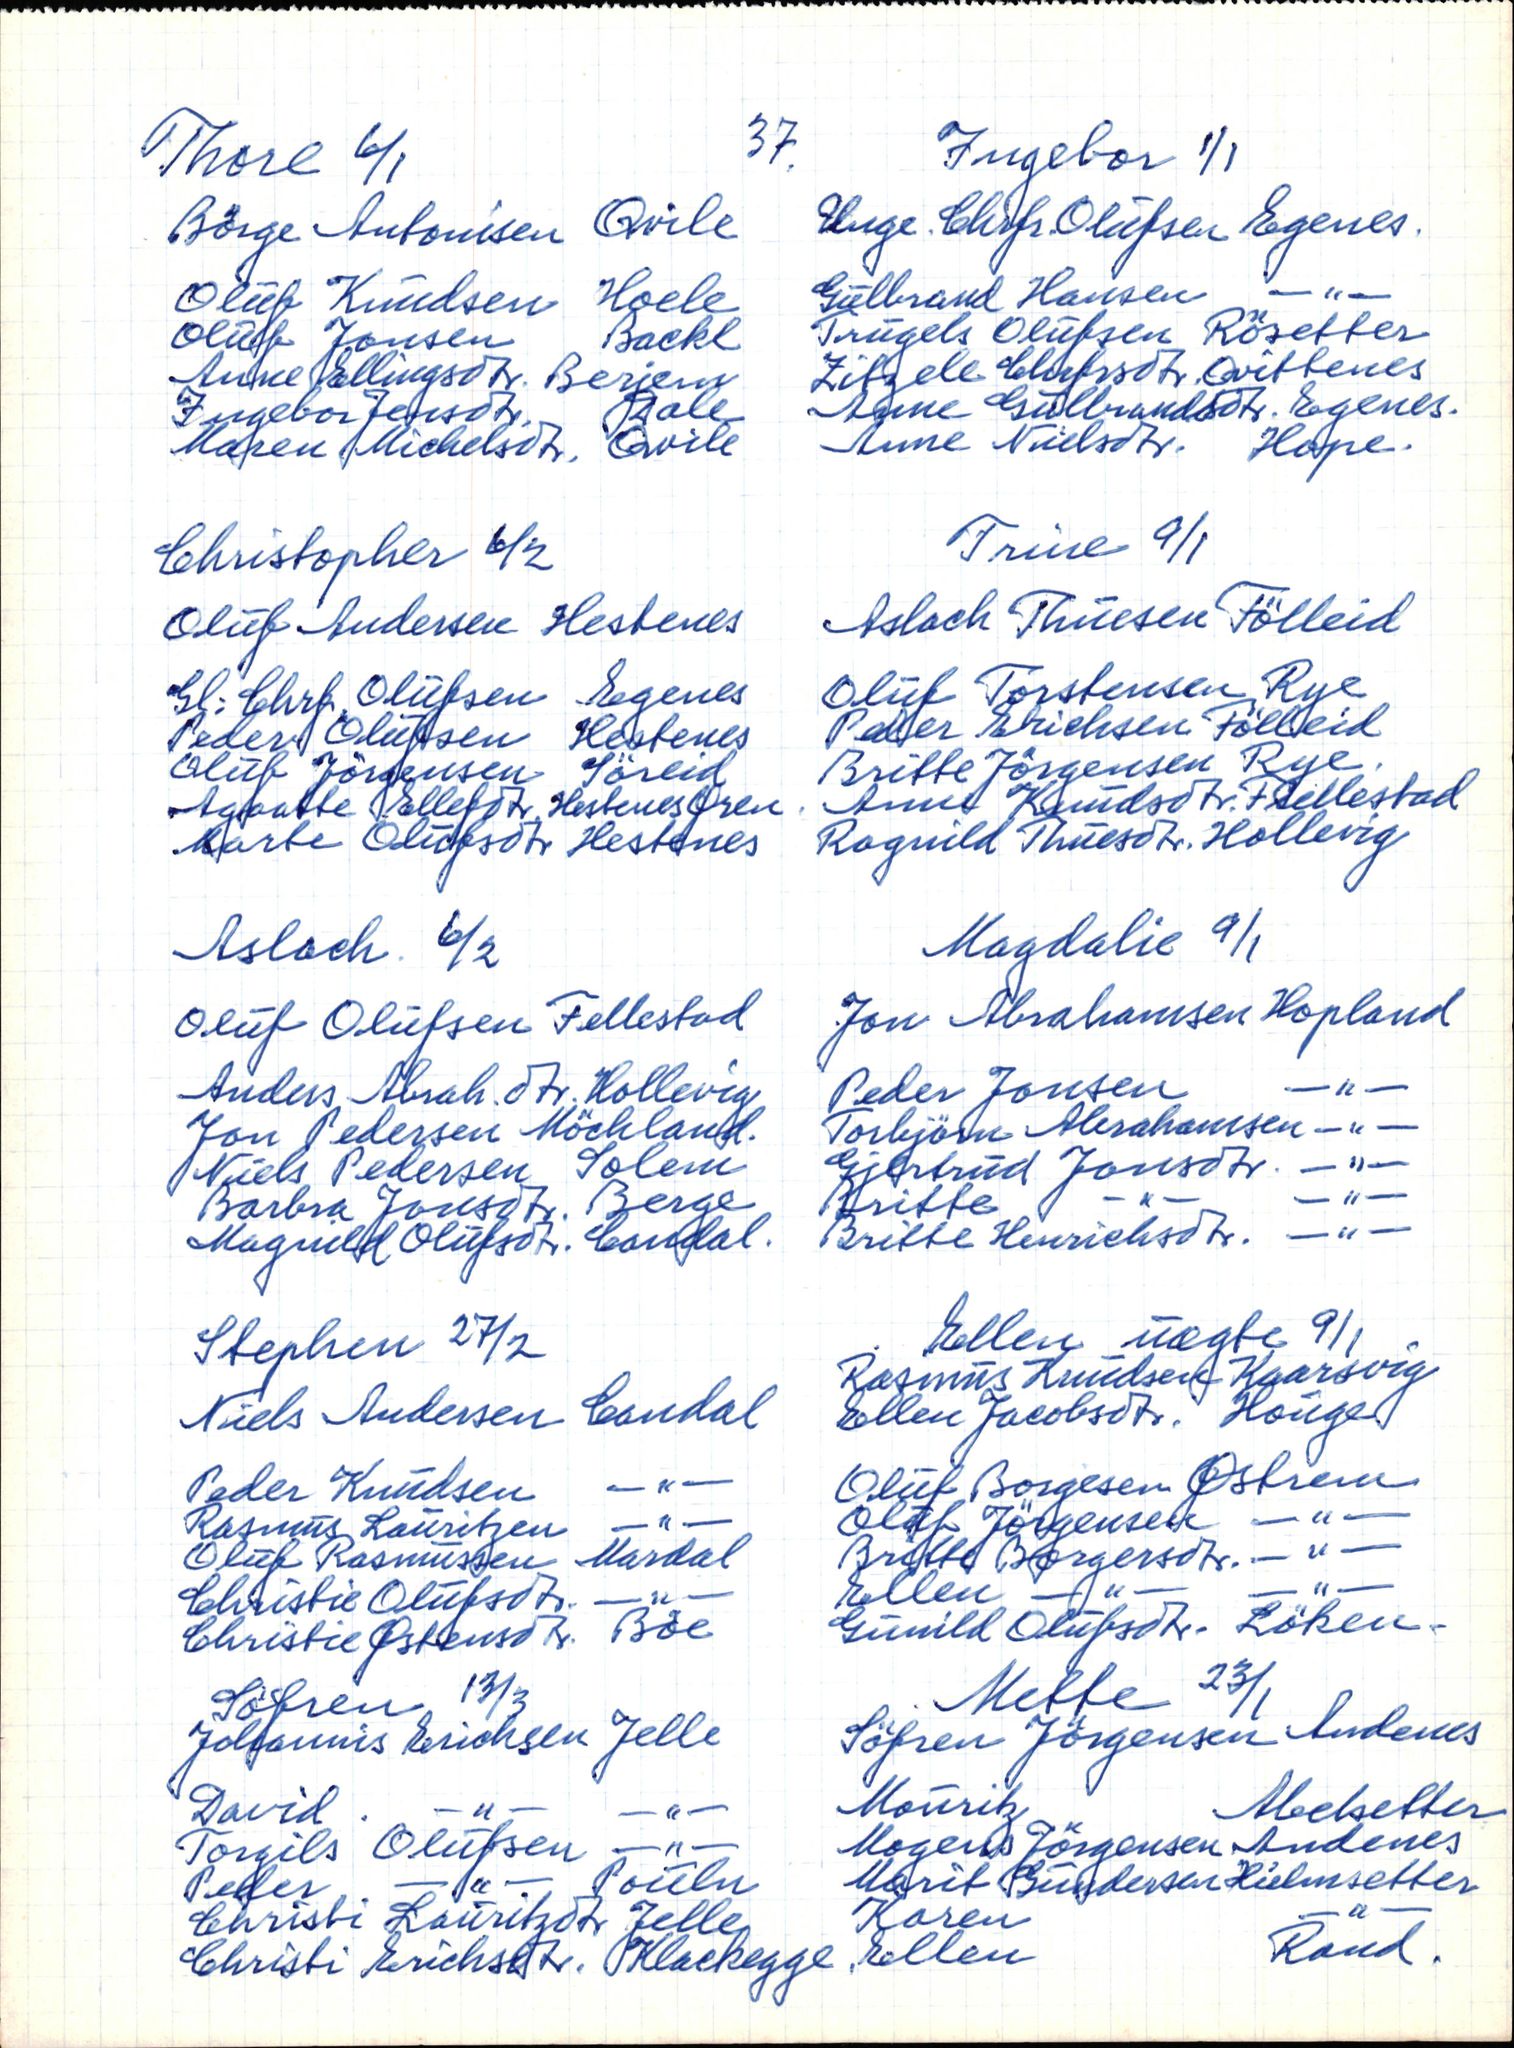 37.
Thore 6/1
Börge Antonisen Qvile
Oluf Knudsen Hoele
Oluf Jonsen Backe
Anne Ellingsdtr. Berjem
Ingebor Jensdtr. Bale
Maren Michelsdtr. Qvile
Christopher 6/2
Oluf Andersen Hestenes
Gl: Chrf. Olufsen Egenes
Peder Olufsen Hestenes
Oluf Jörgensen Söreid
Agoatte Ellefdtr. Hestenesøren
Marte Olufsdtr. Hestenes
Aslach. 6/2
Oluf Olufsen Fellestad
Anders Abrah.dtr. Hollevig
Jon Pedersen Möchland.
Niels Pedersen Solem
Barbra Jonsdtr. Berge
Magnild Olufsdtr. Candal.
Stephen 27/2
Niels Andersen Candal
Peder Knudsen —"—
Rasmus Lauritzen —"—
Oluf Rasmussen Mardal
Christie Olufsdtr. —"—
Christie Østensdtr. Böe
Söfren 13/3
Johannis Erichsen Jelle
David. —"— —"—
Torgils Olufsen —"—
Peder —"— Pouln
Christi Lauritzdtr Jelle
Christi Erichsdtr. Klackegge
Ingebor 1/1
Unge. Chrfr. Olufsen Egenes.
Gulbrand Hansen —"—
Trugels Olufsen Rösetter
Zitzele Chrfrsdtr. Qvittenes
Anne Gulbrandsdtr. Egenes.
Anne Nielsdtr. Hope.
Trine 9/1
Aslach Thuesen Fölleid
Oluf Torstensen Rye
Peder Erichsen Fölleid
Britte Jörgensen Rye.
Anne Knudsdtr. Fellestad
Ragnild Thuesdtr. Hollevig
Magdalie 9/1
Jon Abrahamsen Hopland
Peder Jonsen —"—
Torbjörn Abrahamsen —"—
Gjertrud Jonsdtr. —"—
Britte —"— —"—
Britte Henrichsdtr. —"—
Ellen uægte 9/1
Rasmus Knudsen Kaarsvig
Ellen Jacobsdtr. Houge
Oluf Borgesen Østrem
Oluf Jörgensen —"—
Britte Borgersdtr. —"—
Ellen —"— —"—
Gunild Olufsdtr. Löken.
Mette 23/1
Söfren Jörgensen Andenes
Mouritz Abelsetter
Mogens Jörgensen Andenes
Marit Gundersen Hielmsetter
Karen —"—
Ellen Rand.